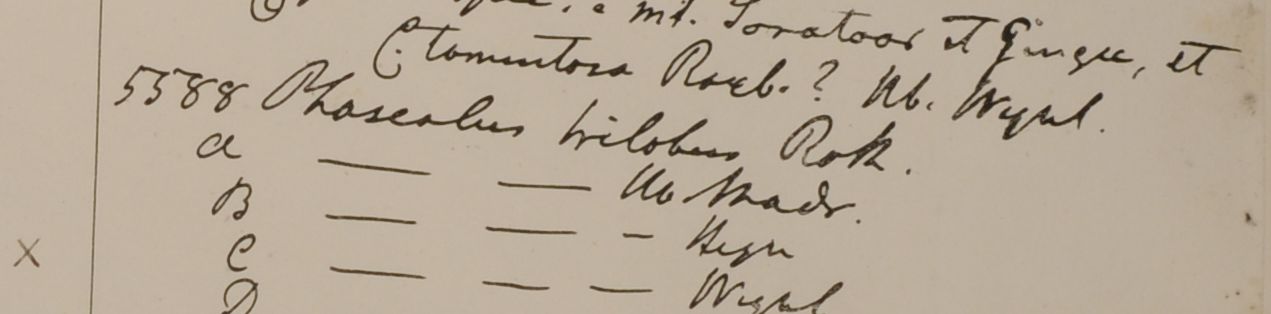 e mt. Soratoor et Gingee, et
C. tomentosa Roxb.? Hb. Wight.
5588 Phaseolus trilobus Roth.
a — — Hb Madr.
B — — - Heyn
X C — — — Wight
D